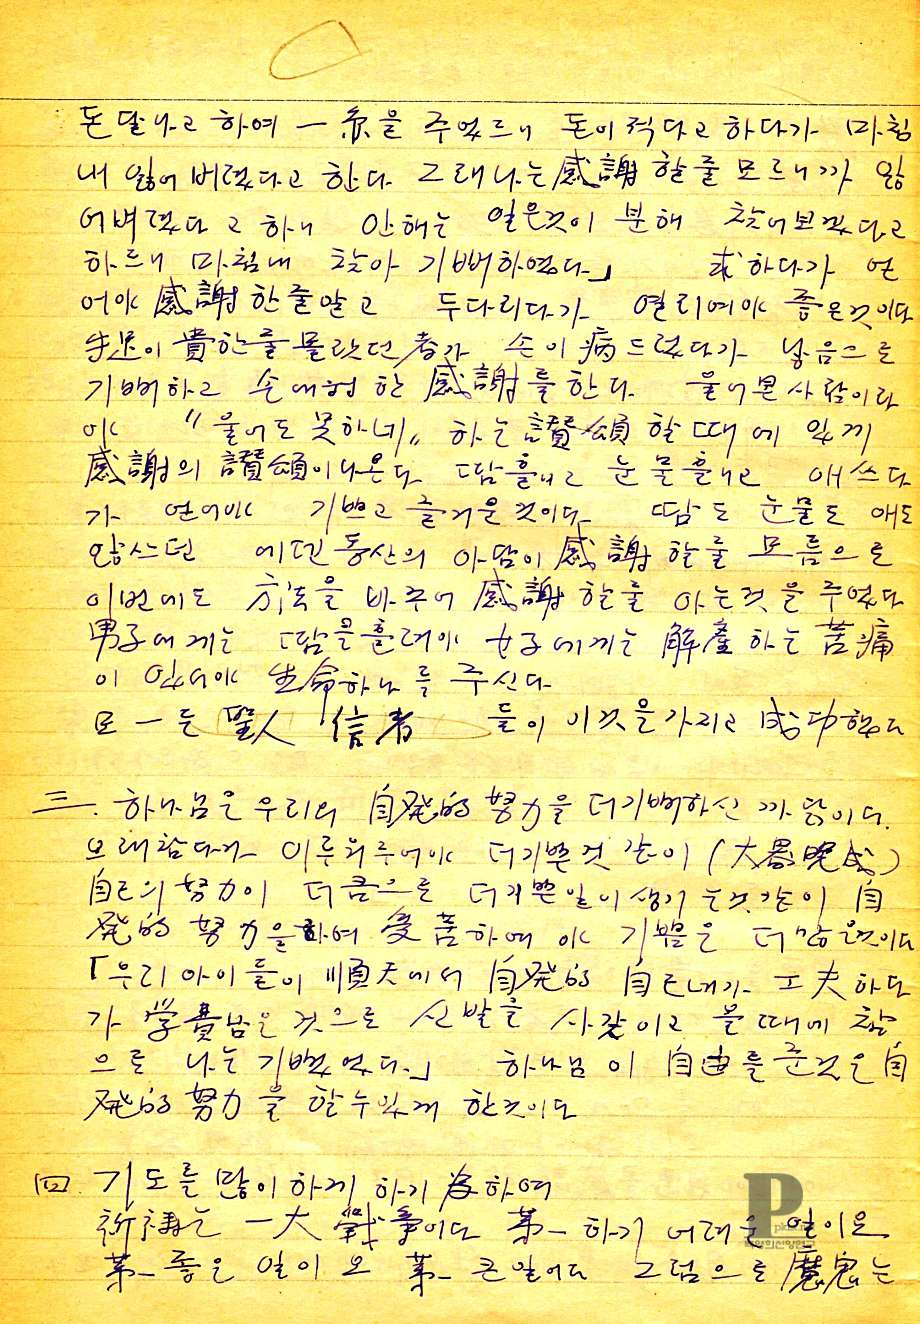 돈달나고 하여 一条을 주었드니 돈이적다고 하다가 마침
내 잃어버렸다고 한다 그래 나는 感謝할줄 모르니까 잃
어버렸다고 하니 안해는 잃은것이 분해 찾어보겠다고
하드니 마침내 찾아 기뻐하였다.」 求하다가 얻
어야 感謝한줄알고 두다리다가 열리여야 좋은것이다
手足이 貴한줄 몰랐던 者가 손이 病드렀다가 낳음으로
기뻐하고 손에 한 感謝를 한다. 울어본사람이라
야 "울어도 못하네" 하는 讚頌 할때에 있게
感謝의 讚頌이나온다. 땀흘니고 눈물흘니고 애쓰다
가 얻어야 기쁘고 즐거운것이다. 땀도 눈물도 애도
않쓰던 에덴동산의 아담이 感謝할줄 모름으로
이번에도 方法을 바꾸어 感謝할줄 아는것을 주었다
男子에게는 땀을흘려야 女子에게는 解産하는 苦痛
이 있어야 生命하나를 주신다.
모一든 聖人 信者 들이 이것을가지고 成功했다
三. 하나님은 우리의 自発的 努力을 더기뻐하신 까닭이다.
오래참다가 이루워주어야 더기쁜것 같이 (大器晩成)
自己의 努力이 더큼으로 더기쁜일이생기는것같이 自
発的 努力을하여 受苦하여야 기쁨은 더많은것이다
「우리아이들이 順天에서 自発的 自己내가 工夫하다
가 学費남은 것으로 신발을 사왔이고 올때에 참
으로 나는기뻤었다.」 하나님이 自由를준것은 自
発的 努力을 할수있게 한것이다
四. 기도를 많이하게 하기 為하여
祈禱는 一大 戦争이다 第一 하기 어려운 일이오.
第一 좋은 일이오 第一 큰일이다 그럼으로 魔鬼는
P